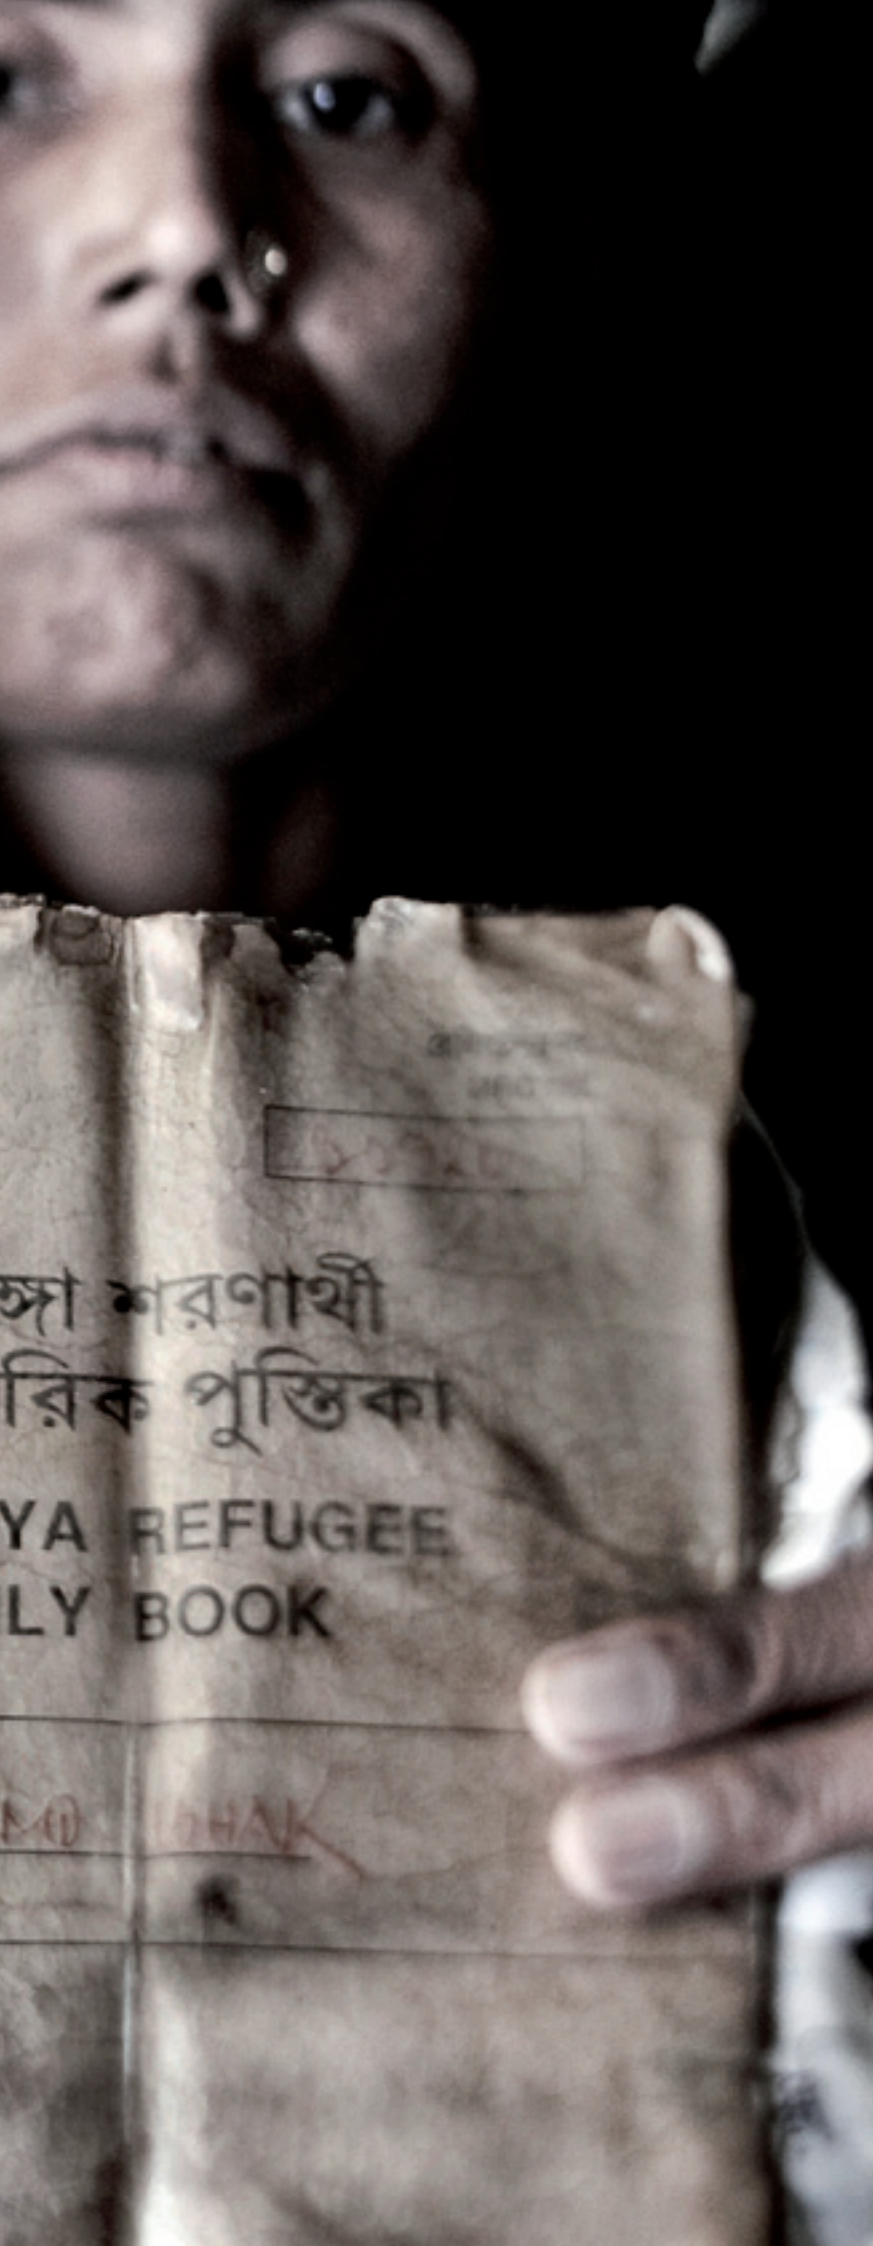 ঙ্গা শরণার্থী
রিক পুস্তিকা
YA REFUGEE
LY BOOK
MD ISHAK